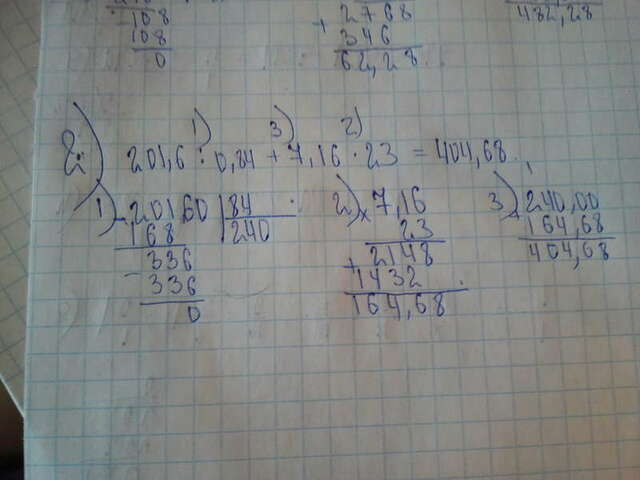 108
108
0
2768
+ 346
62,28
482,28
1) 3) 2)
2) 201,6 : 0,84 + 7,16 · 23 = 404,68
1) 20160 | 84
168 | 240
336
- 336
0
2) × 7,16
23
+ 2148
1432
164,68
3) + 240,00
164,68
404,68